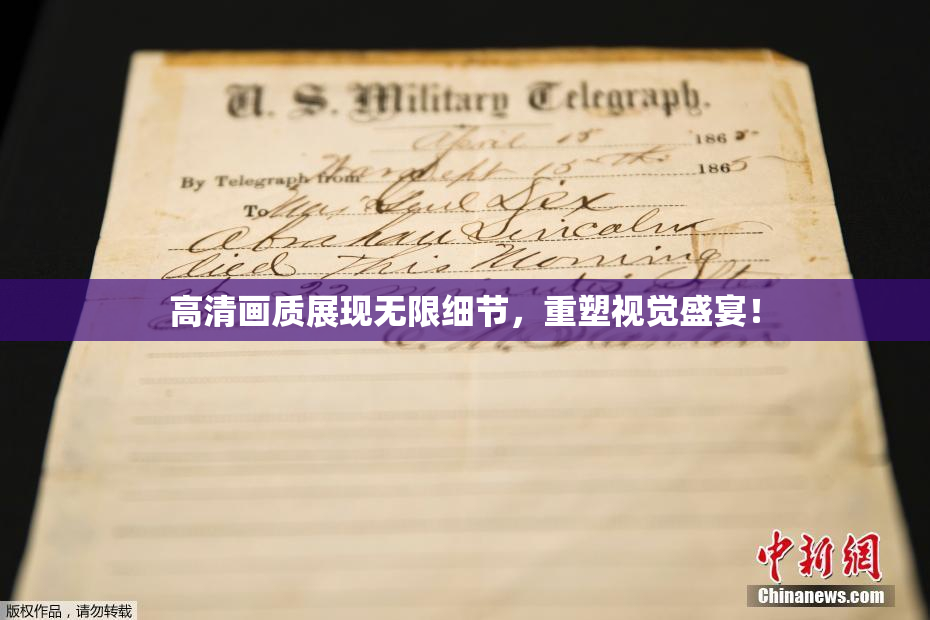 U. S. Military Telegraph.
April 15 1865
By Telegraph from War Dept 15th 1865
To Maj Genl Dix
Abraham Lincoln
died This Morning
22 minutes after
高清画质展现无限细节，重塑视觉盛宴！
Stanton
中新網
Chinanews.com
版权作品，请勿转载